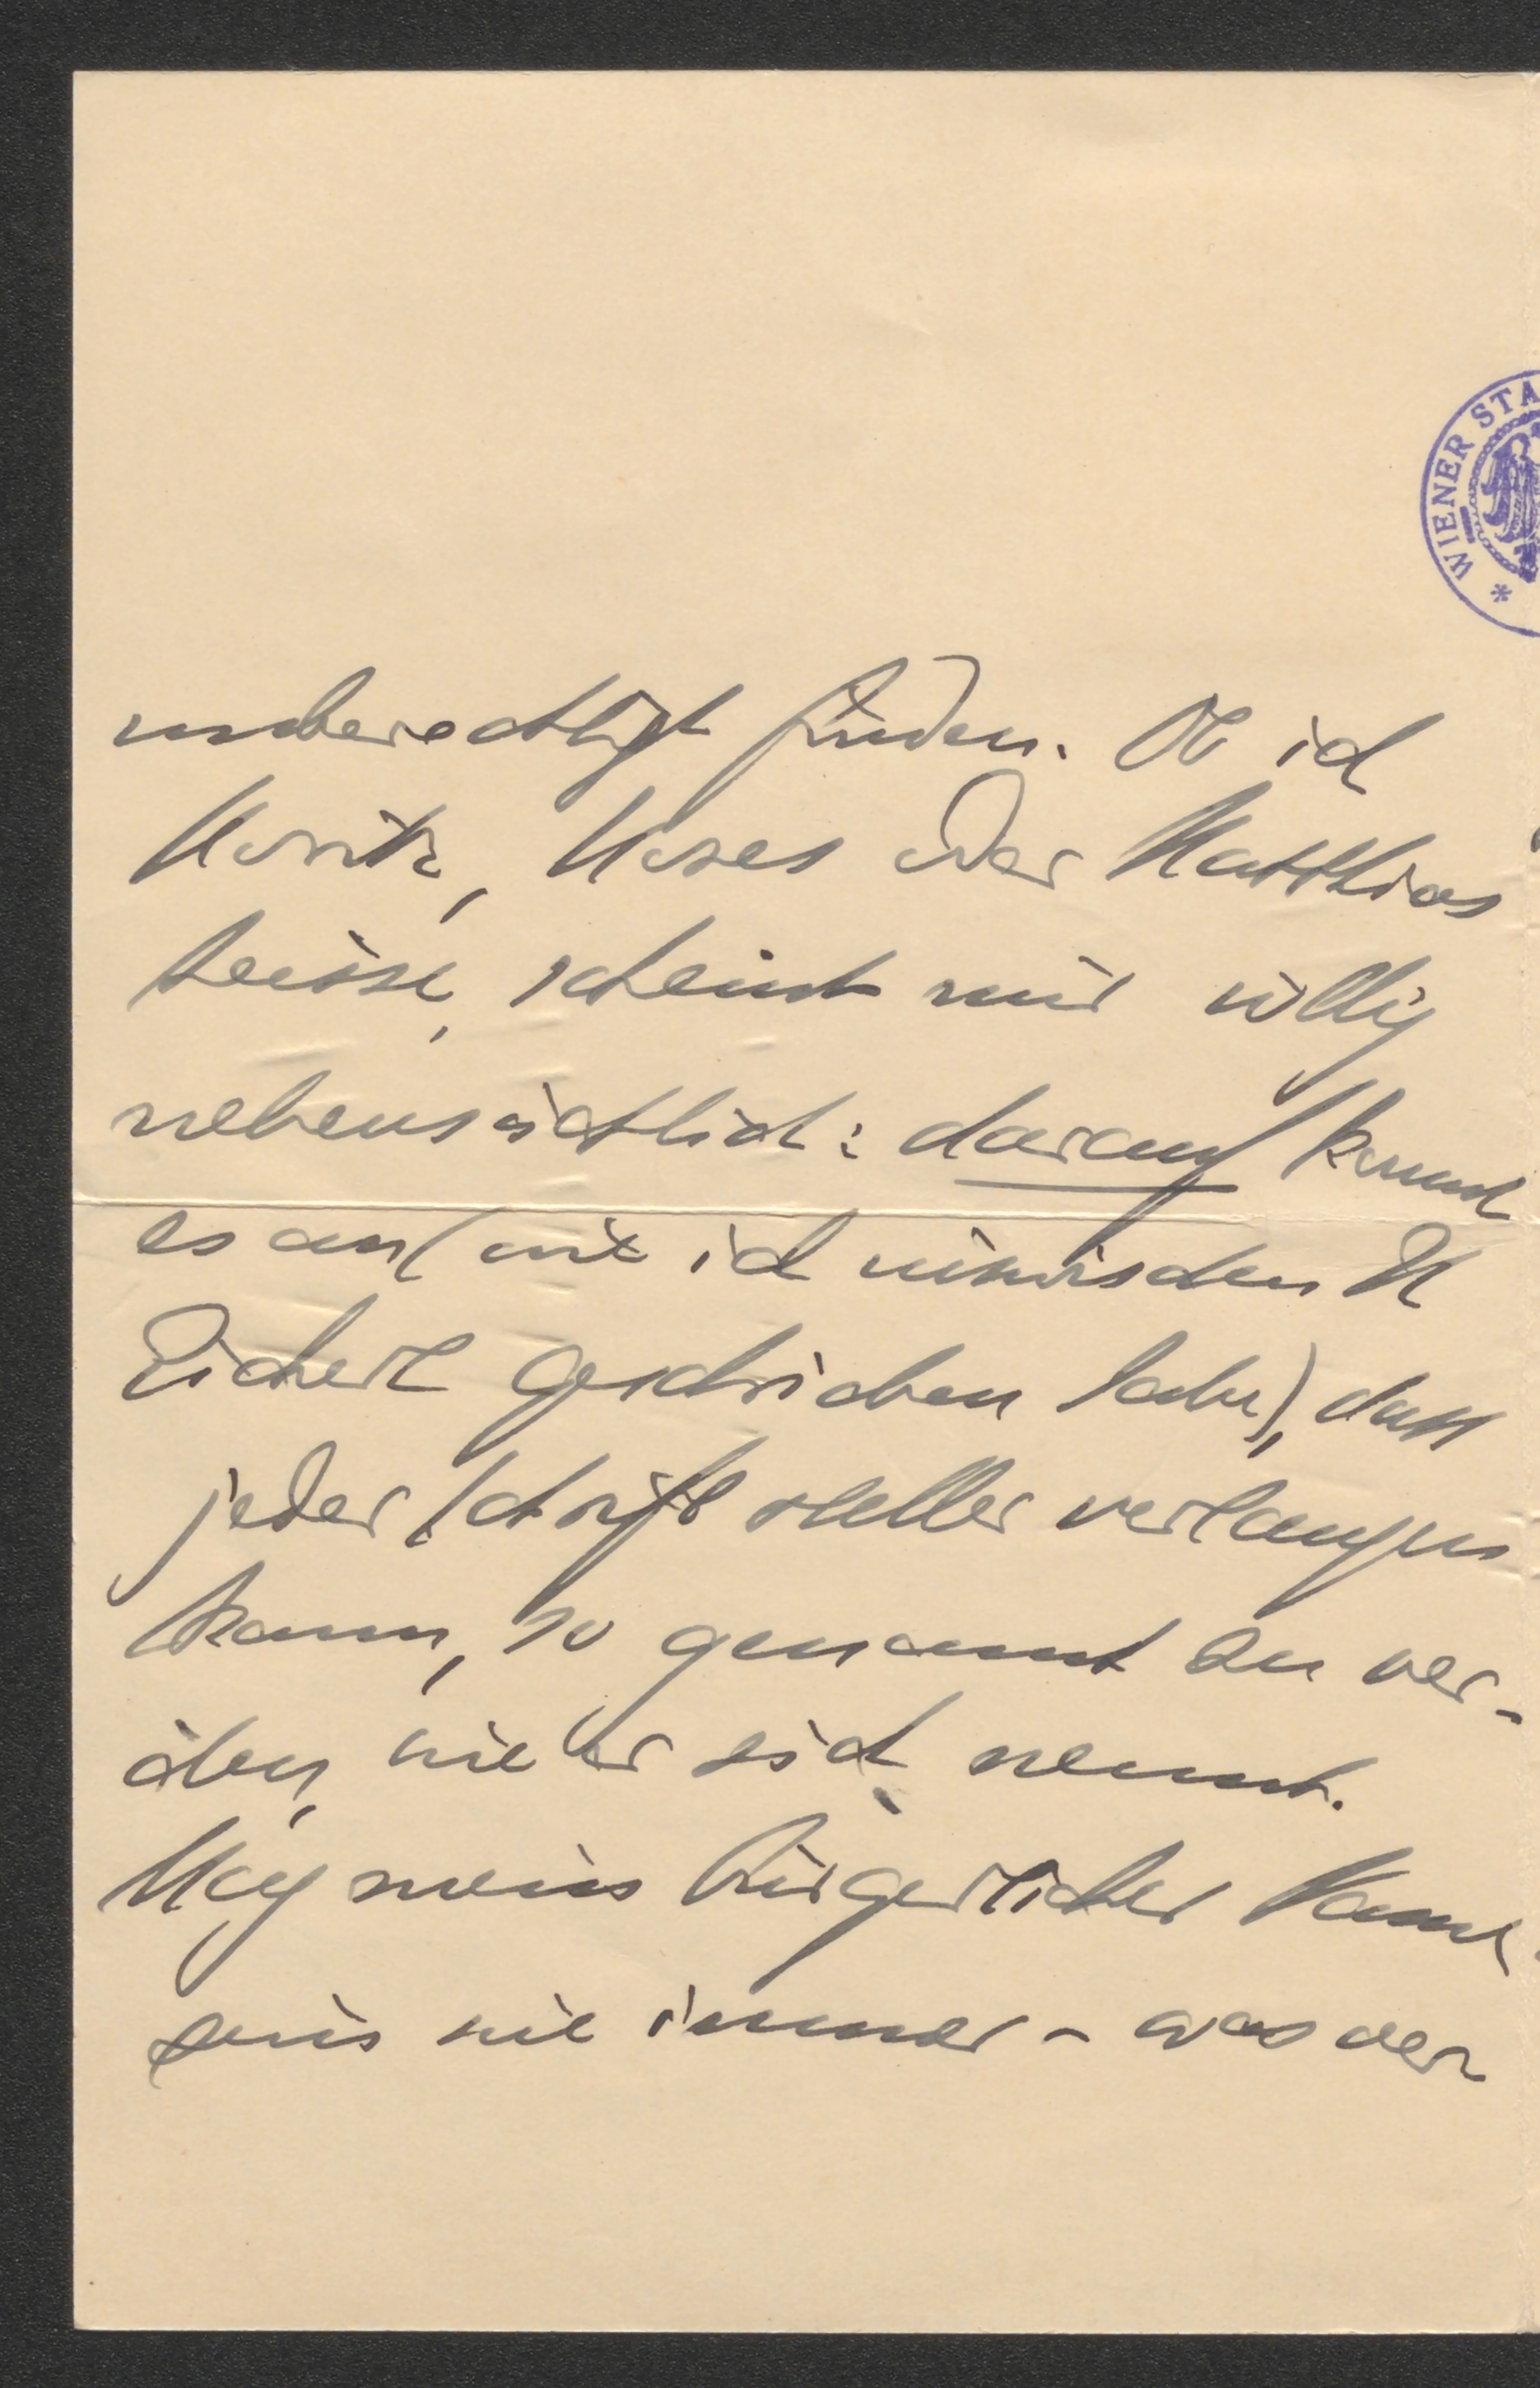 WIENER STA
unberechtigt finden. Ob ich
Moritz, Moses oder Matthias
heisse, scheint mir völlig
nebensächlich: darauf kommt
es an (wie ich inzwischen H
Eichert geschrieben habe), dass
jeder Schriftsteller verlangen
kann, so genannt zu wer-
den, wie er sich nennt.
Mag mein bürgerlicher Name
sein wie immer - was